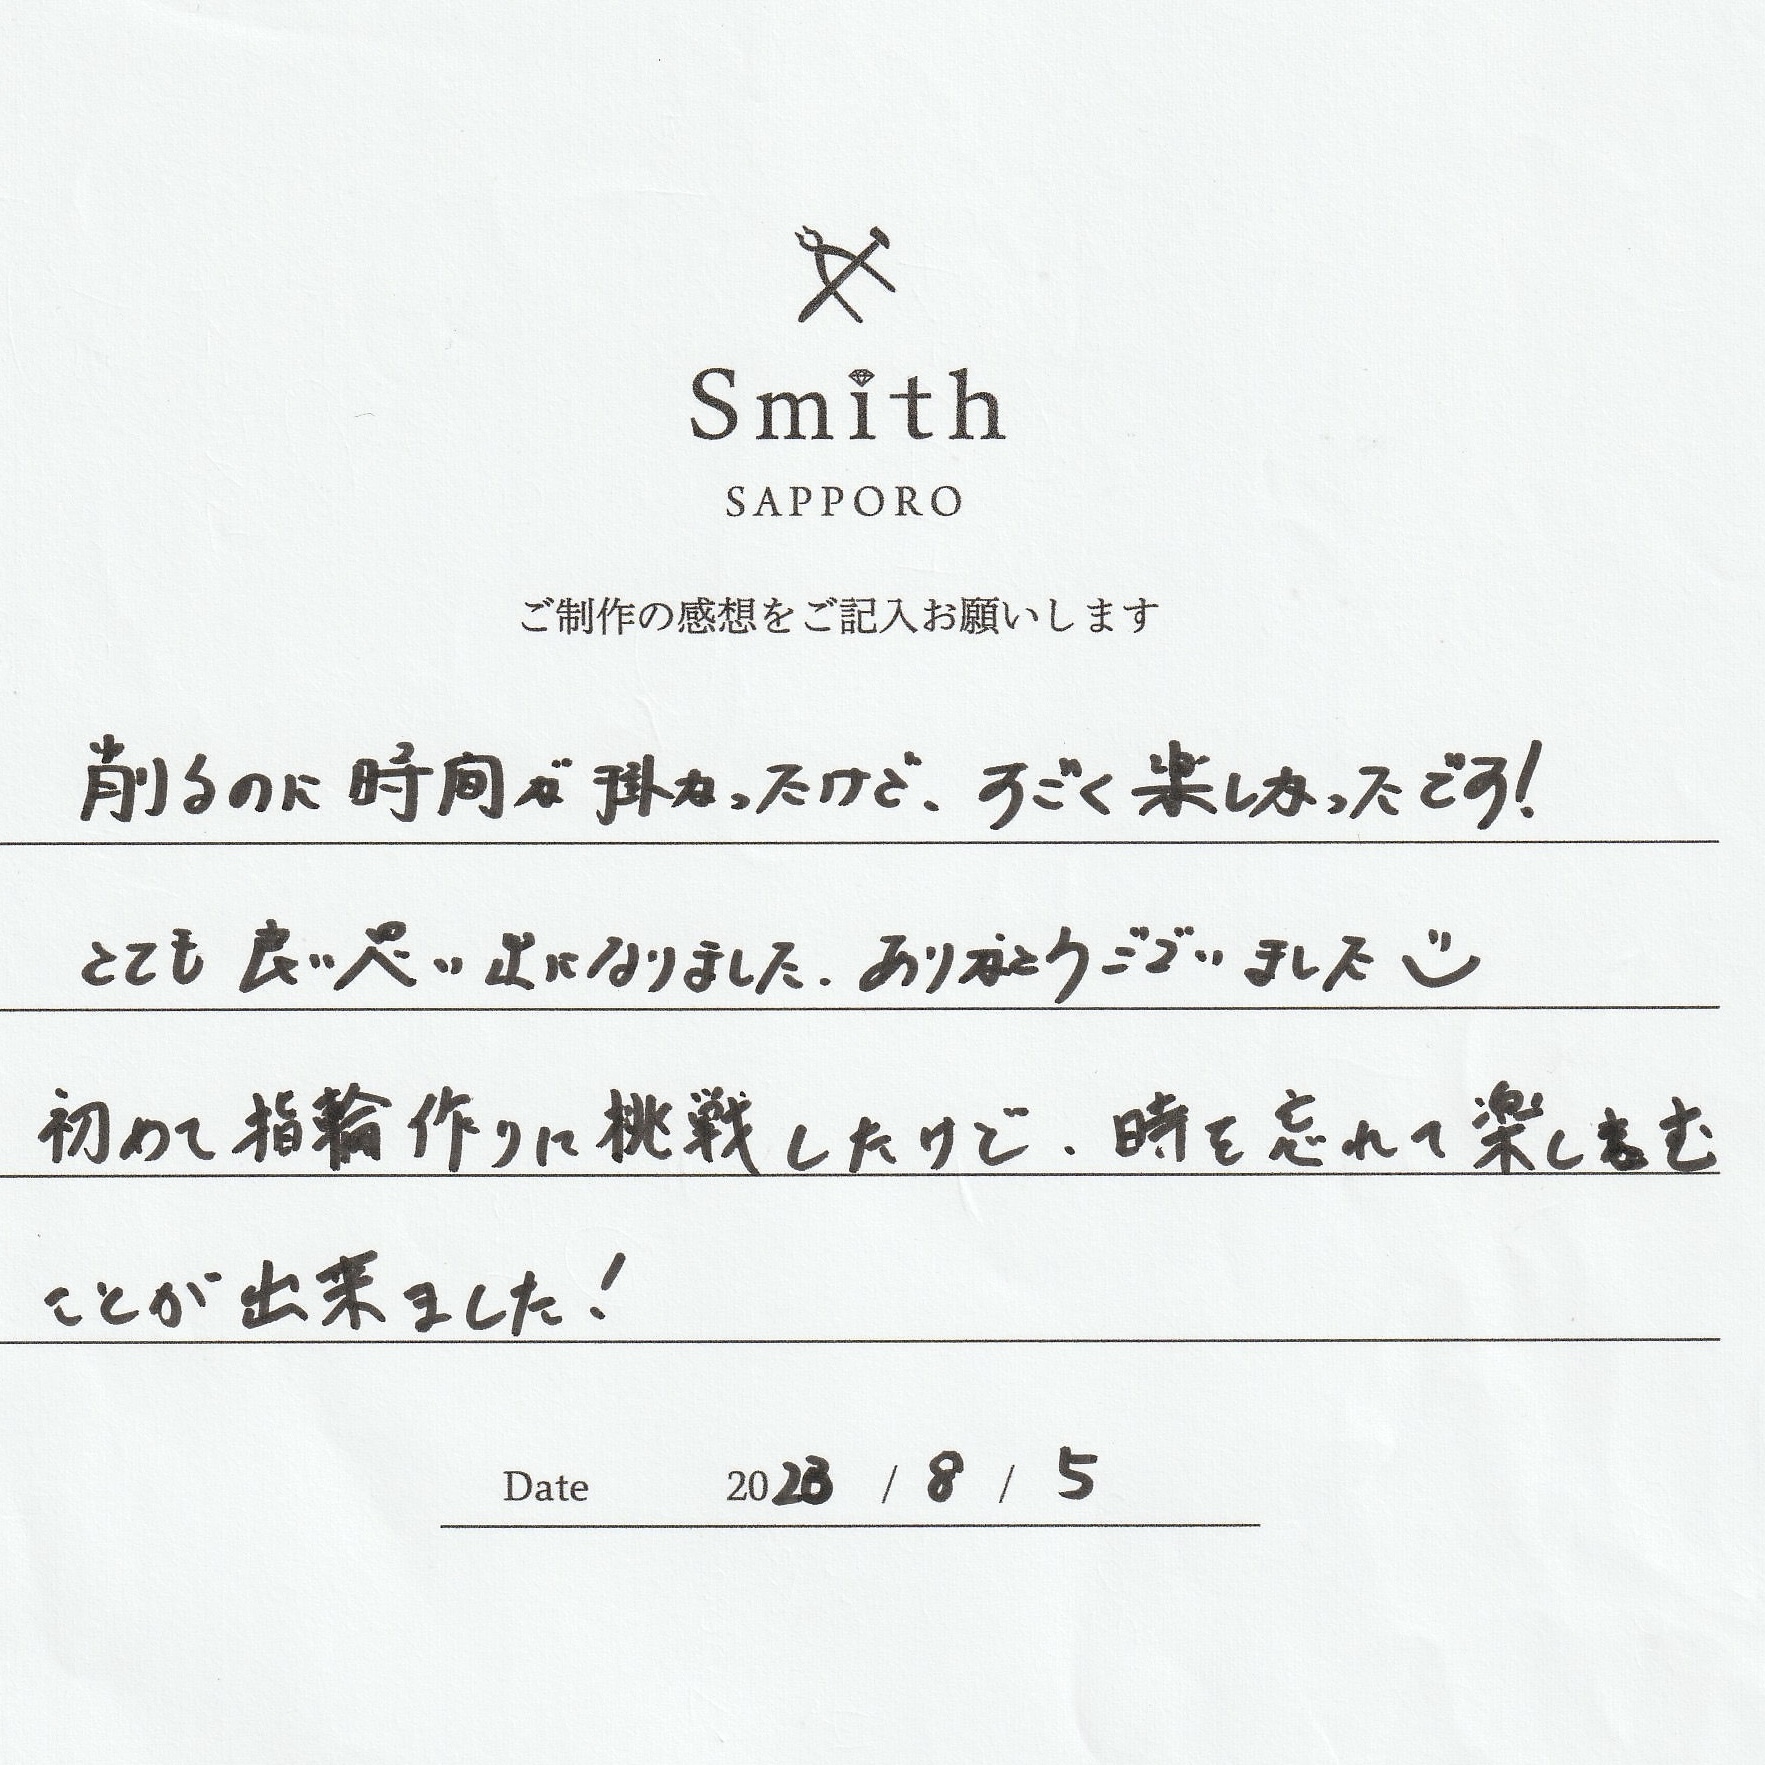 Smith
SAPPORO
ご制作の感想をご記入お願いします
削るのに時間が掛かったけど、すごく楽しかったです!
とても良い思い出になりました.ありがとうございました
初めて指輪作りに挑戦したけど、時を忘れて楽しむ
ことが出来ました!
Date 2023 / 8 / 5